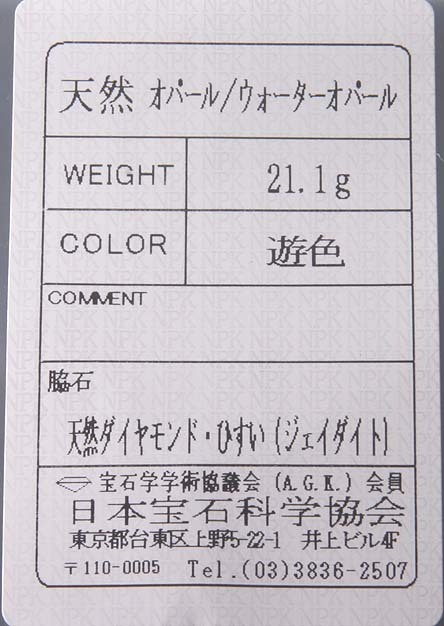 天然 オパール/ウォーターオパール
WEIGHT 21.1g
COLOR 遊色
COMMENT
脇石
天然ダイヤモンド・ひすい(ジェイダイト)
宝石学学術協議会(A.G.K.)会員
日本宝石科学協会
東京都台東区上野5-22-1 井上ビル4F
〒110-0005 Tel.(03)3836-2507